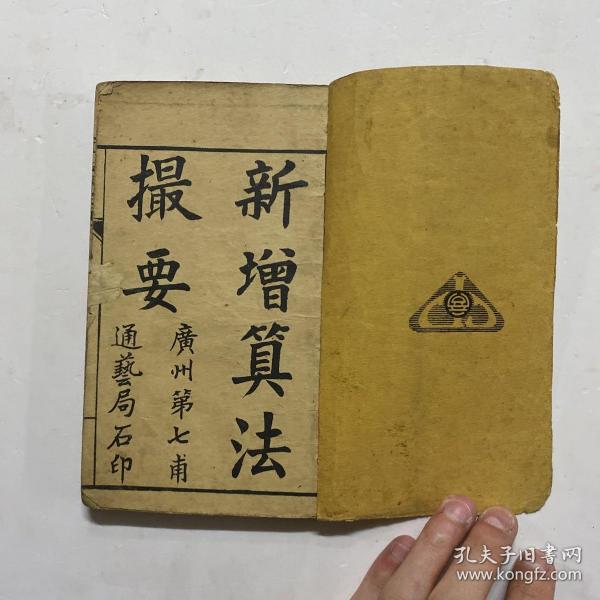 新增算法
撮要
廣州第七甫
通藝局石印
孔夫子旧书网
www.kongfz.com